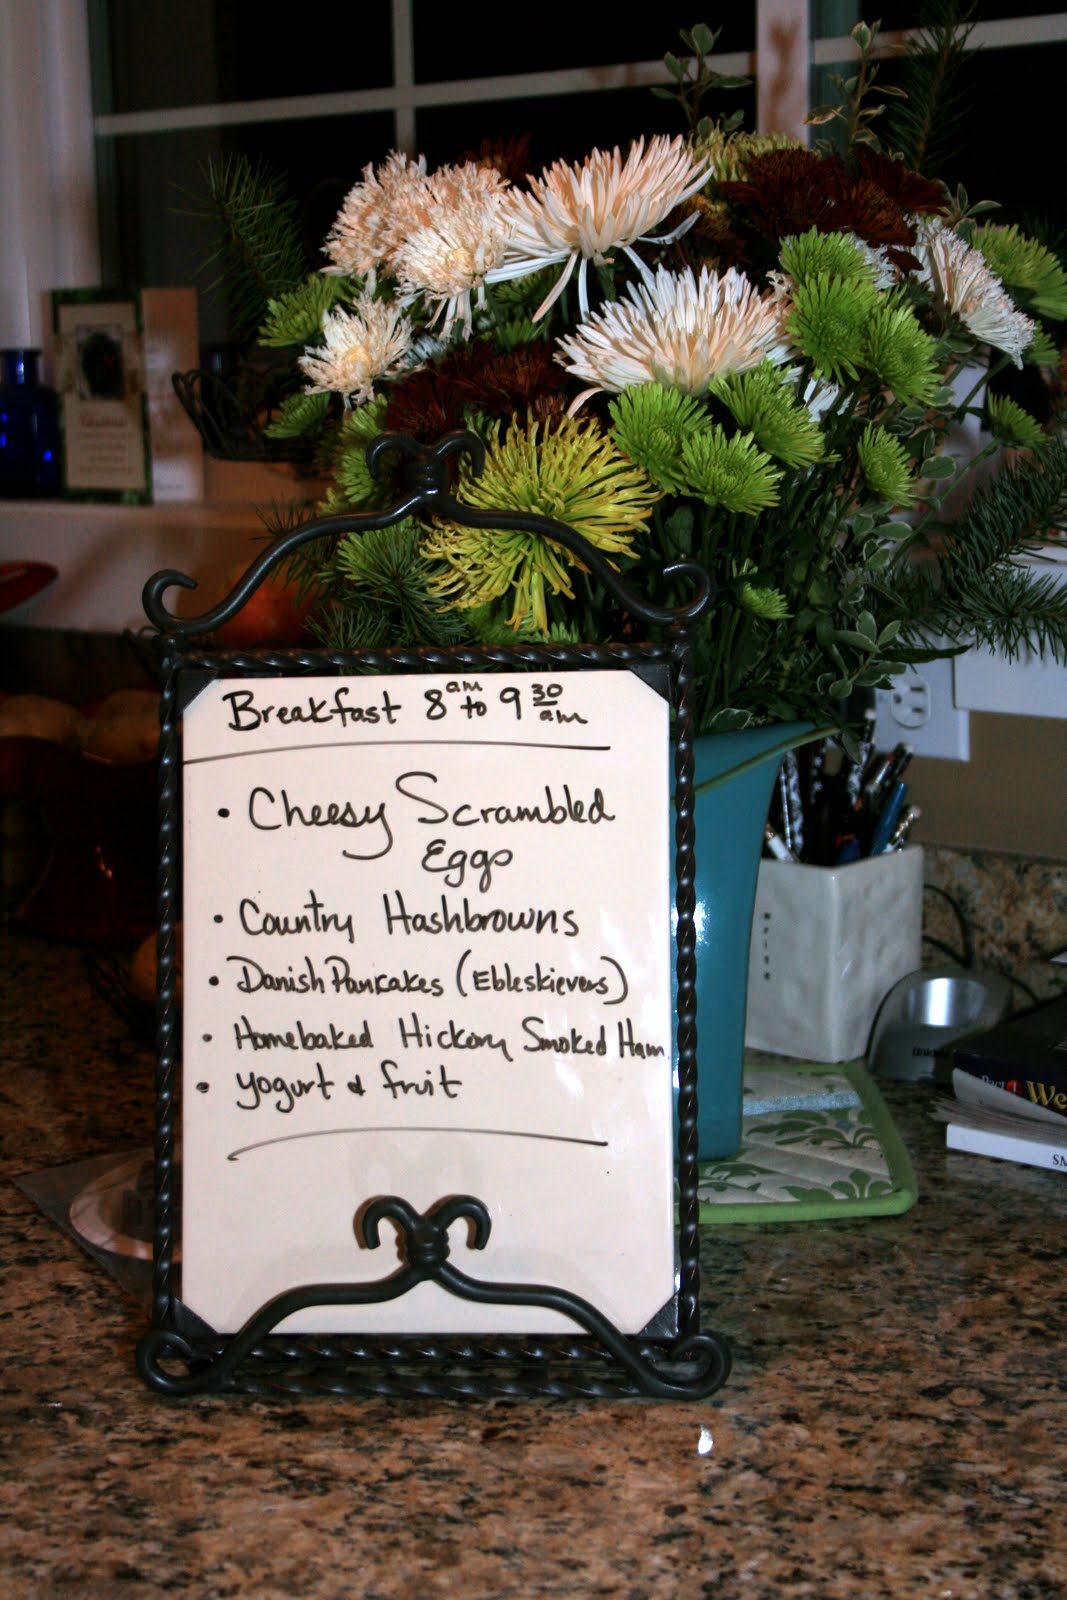 Breakfast 8am to 9 30 am
• Cheesy Scrambled
Eggs
• Country Hashbrowns
• Danish Pancakes (Ebleskievers)
• Homebaked Hickory Smoked Ham
• yogurt & fruit
write
Part 1
We